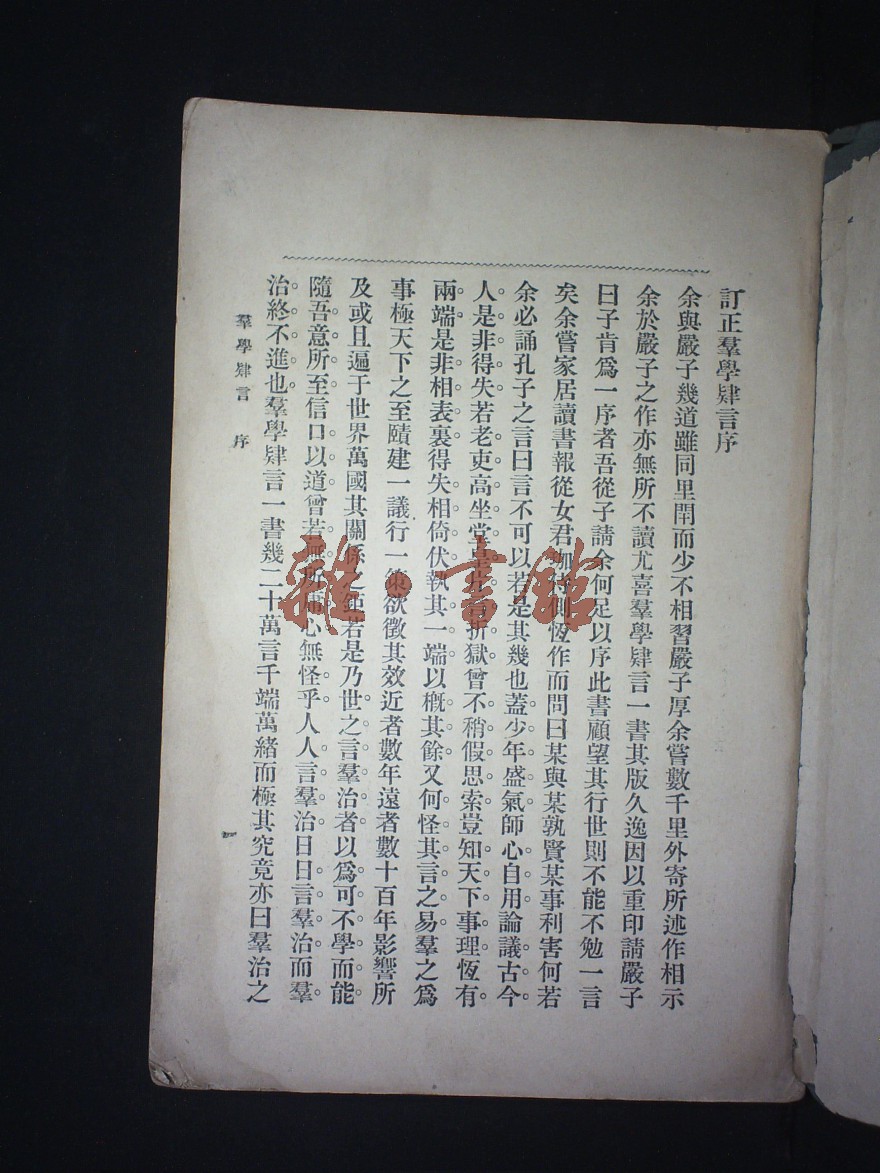 訂正羣學肄言序
余與嚴子幾道雖同里閈而少不相習嚴子厚余嘗數千里外寄所述作相示
余於嚴子之作亦無所不讀尤喜羣學肄言一書其版久逸因以重印請嚴子
曰子肯爲一序者吾從子請余何足以序此書顧望其行世則不能不勉一言
矣余嘗家居讀書報從女君珈侍側恆作而問曰某與某孰賢某事利害何若
余必誦孔子之言曰言不可以若是其幾也蓋少年盛氣師心自用論議古今
人是非得失若老吏高坐堂皇折獄曾不稍假思索豈知天下事理恆有
兩端是非相表裏得失相倚伏執其一端以概其餘又何怪其言之易羣之爲
事極天下之至賾建一議行一策欲徵其效近者數年遠者數十百年影響所
及或且遍于世界萬國其關係之鉅若是乃世之言羣治者以爲可不學而能
隨吾意所至信口以道曾若無所用心無怪乎人人言羣治日日言羣治而羣
治終不進也羣學肄言一書幾二十萬言千端萬緒而極其究竟亦曰羣治之
羣學肄言 序
一
雜·書館